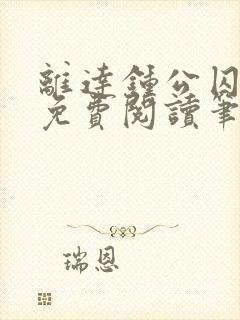 離達鍾公囚
免費閱讀筆
瑞恩